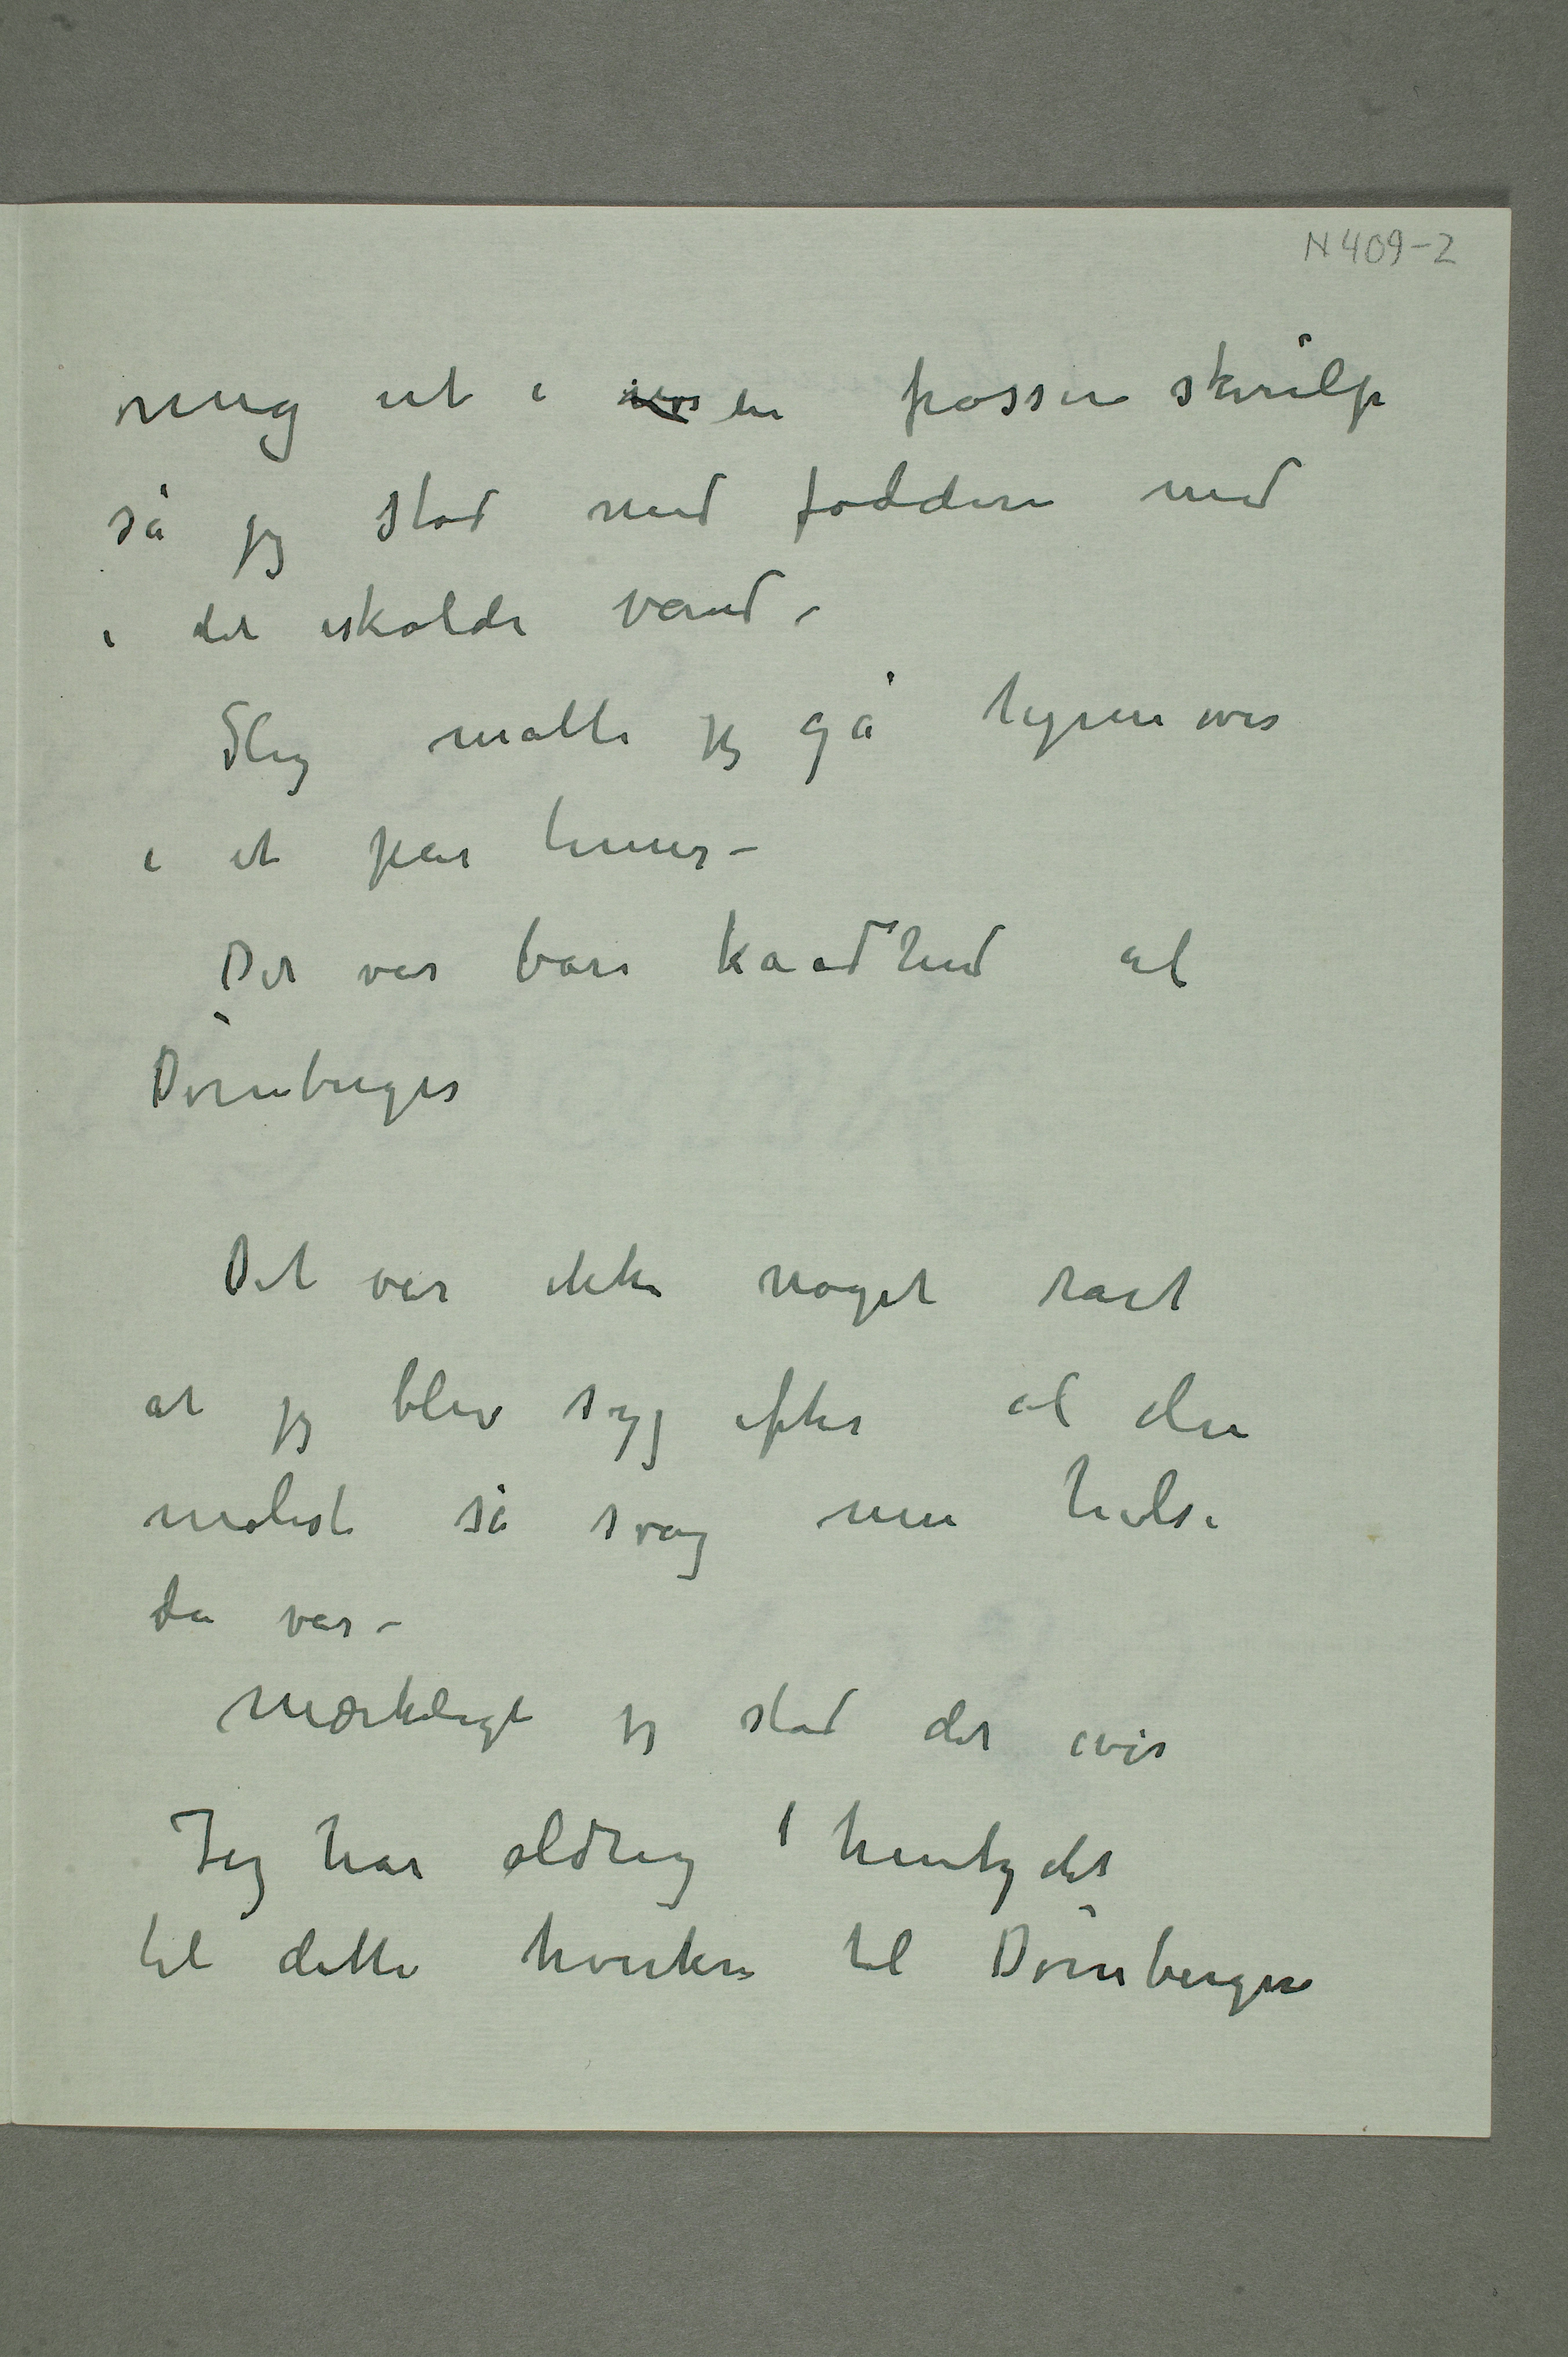 N 409-2
mig ut i en frossen skvalp
så jeg stod med føddene ned
i det iskolde vand –
Slig måtte jeg gå hjemover
i et par timer –
Det var bare kaadhed al
Dørnberger
Det var ikke noget rart
at jeg blev syg efter al den
moleste så svag min helse
da var –
Mærkeligt jeg stod det over
Jeg har aldrig hentydet
til dette hverken til Dørnberger